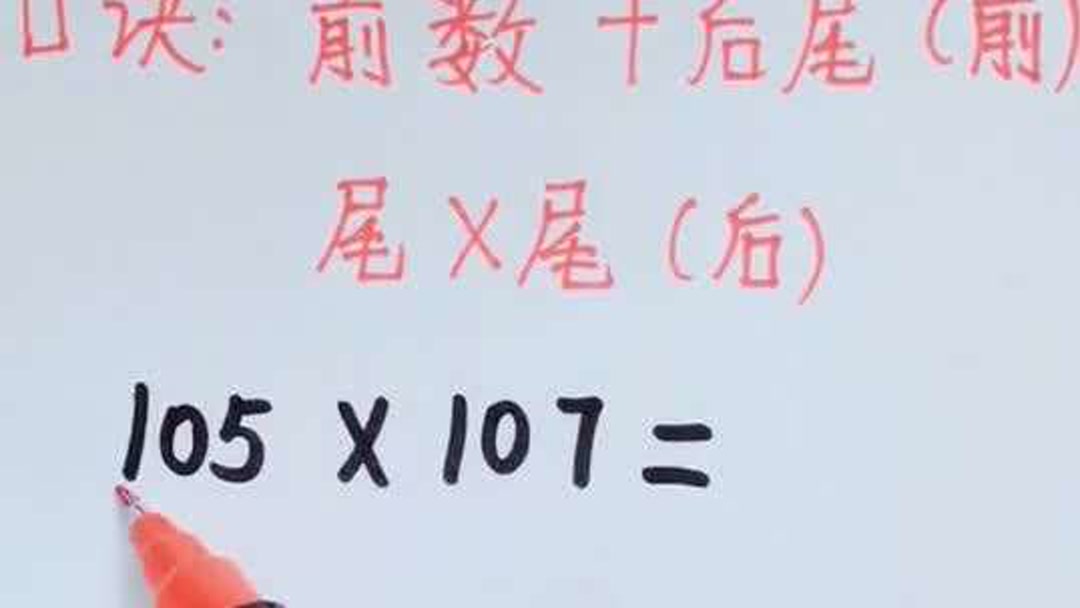 口诀:前数+后尾(前)
尾X尾(后)
105 X 107 =